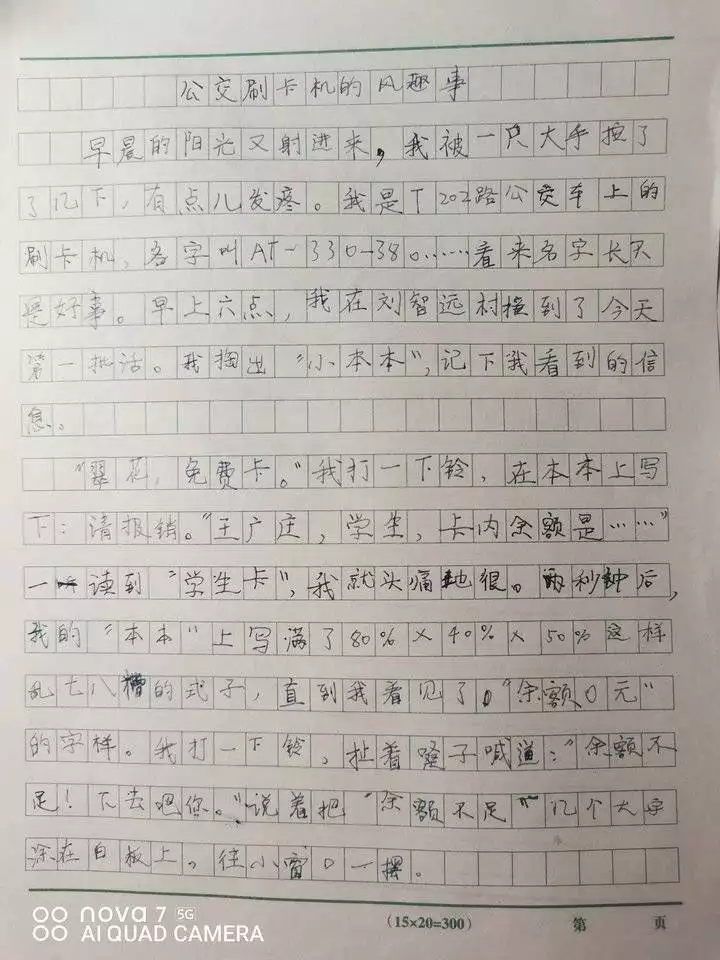 公交刷卡机的风趣事
早晨的阳光又射进来，我被一只大手按了
了几下，有点儿发疼。我是T202路公交车上的
刷卡机，名字叫AT-330-380……看来名字长不
是好事。早上六点，我在刘智远村撞到了今天
第一批活。我掏出“小本本”，记下我看到的信
息。
“翠花，免费卡。”我打一下铃，在本本上写
下：请报销。“王广庄，学生，卡内余额是……”
一读到“学生卡”，我就头痛地很。两秒钟后，
我的“本本”上写满了80%×40%×50%这样
乱七八糟的式子，直到我看见了“余额0元”
的字样。我打一下铃，扯着嗓子喊道：“余额不
足！下去吧您。”说着把“余额不足”几个大字
涂在白板上，往小窗口一摆。
(15×20=300) 第 页
nova 7 5G
AI QUAD CAMERA